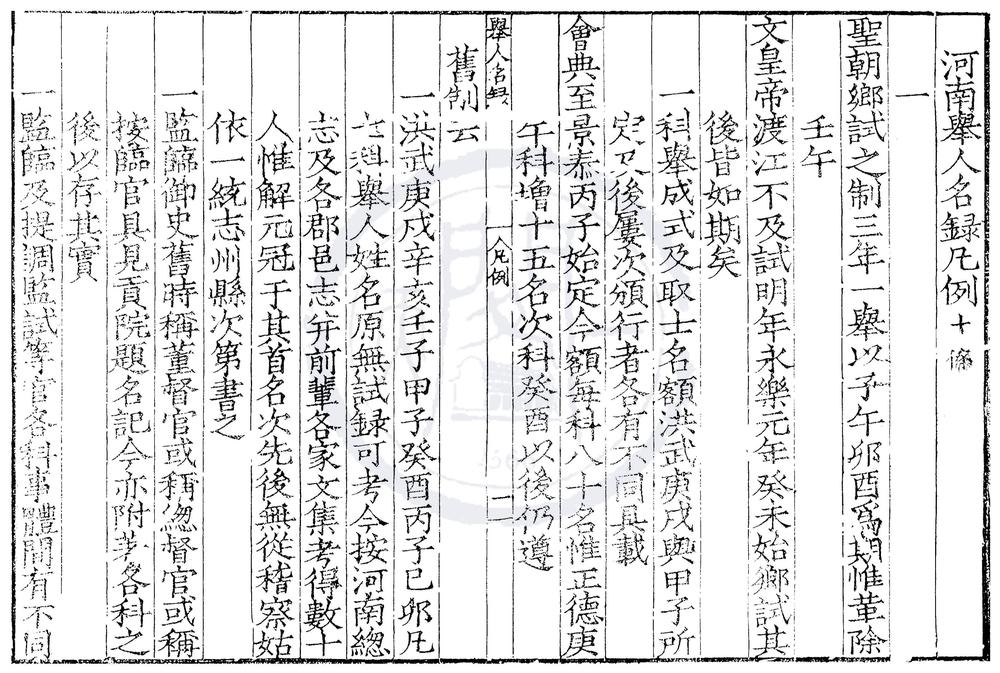 河南舉人名録凡例十條
一
聖朝鄉試之制三年一舉以子午卯酉爲期惟革除
壬午
文皇帝渡江不及試明年永樂元年癸未始鄉試其
後皆如期矣
一科舉成式及取士名額洪武庚戌與甲子所
定及後屢次頒行者各有不同具載
會典至景泰丙子始定今額每科八十名惟正德庚
午科增十五名次科癸酉以後仍遵
舊制云
舉人名録
人凡例
二
一洪武庚戌辛亥壬子甲子癸酉丙子已卯凡
七科舉人姓名原無試録可考今按河南總
志及各郡邑志并前輩各家文集考得數十
人惟解元冠于其首名次先後無從稽察姑
依一統志州縣次第書之
一監臨御史舊時稱董督官或稱總督官或稱
按臨官具見貢院題名記今亦附著各科之
後以存其實
一監臨及提調監試等官各科事體間有不同